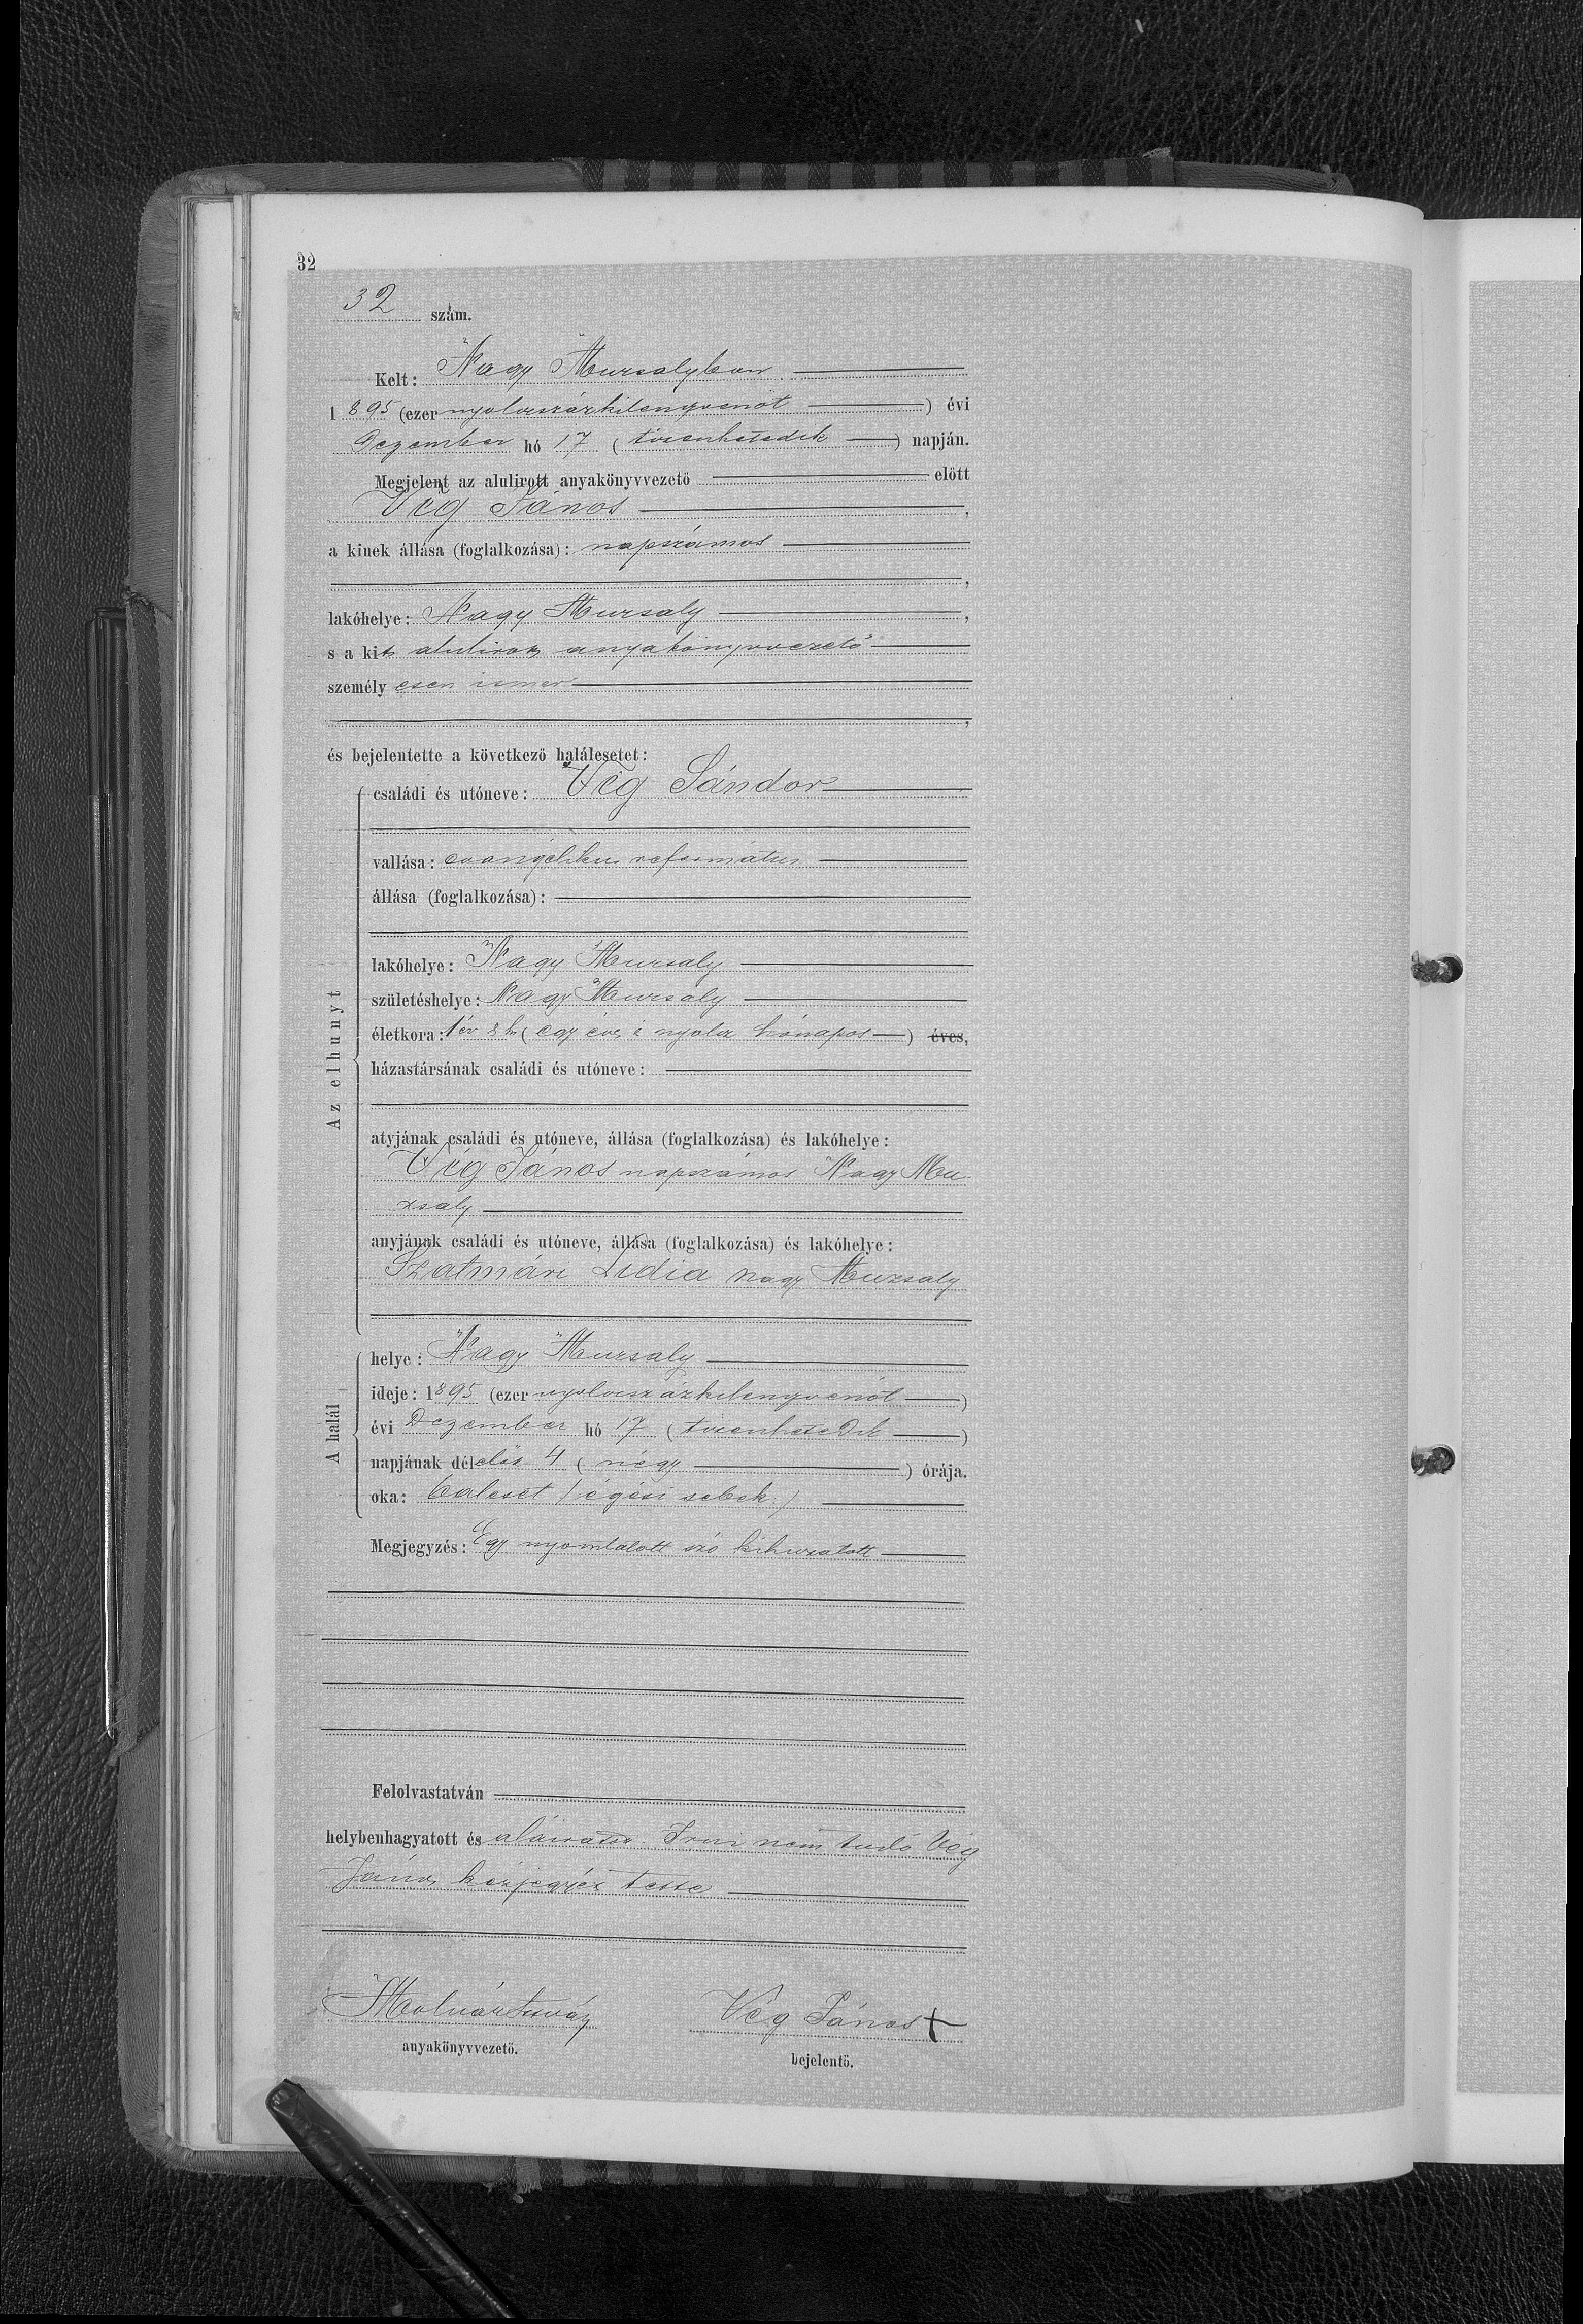 32
32 szám.
Kelt: Nagy Muzsalyban
1895 (ezer nyolczszázkilenczvenöt) évi
Dezember hó 17 (tizenhetedik) napján.
Megjelent az alulirott anyakönyvvezető előtt
Vég János,
a kinek állása (foglalkozása): napszámos
,
lakóhelye: Nagy Muzsaly,
s a kit alulirott anyakönyvvezető
személyesen ismer
,
és bejelentette a következő halálesetet:
Az elhunyt
családi és utóneve: Vég Sándor
vallása: evangélikus református
állása (foglalkozása):
lakóhelye: Nagy Muzsaly
születéshelye: Nagy Muzsaly
életkora: 1 év 8 h (egy éves és nyolcz hónapos) éves,
házastársának családi és utóneve:
atyjának családi és utóneve, állása (foglalkozása) és lakóhelye:
Vég János napszámos Nagy Mu
zsaly
anyjának családi és utóneve, állása (foglalkozása) és lakóhelye:
Szatmári Lidia Nagy Muzsaly
A halál
helye: Nagy Muzsaly
ideje: 1895 (ezer nyolczszázkilenczvenöt)
évi Dezember hó 17 (tizenhetedik)
napjának délelőtt 4 (négy) órája.
oka: baleset / égési sebek /
Megjegyzés: Egy nyomtatott szó kihuzatott
Felolvastatván
helybenhagyatott és aláiratott. Irni nem tudó Vég
János kézjegyét tette
Vég János +
anyakönyvvezető.
bejelentő.